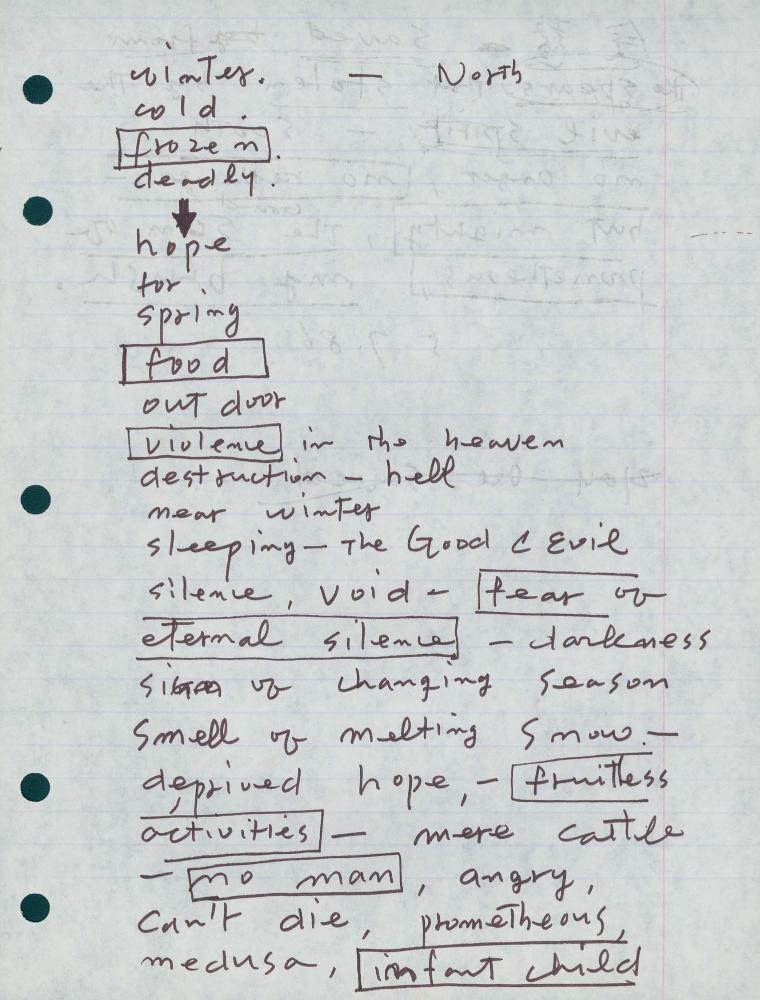 winter. — North
cold.
frozen.
deadly.
hope
for.
spring
food
out door
violence in the heaven
destruction - hell
near winter
sleeping - The Good & Evil
silence, void - fear of
eternal silence - darkness
of changing season
smell of melting snow. -
deprived hope, - fruitless
activities - mere cattle
- no man, angry,
can't die, prometheous,
medusa, infant child